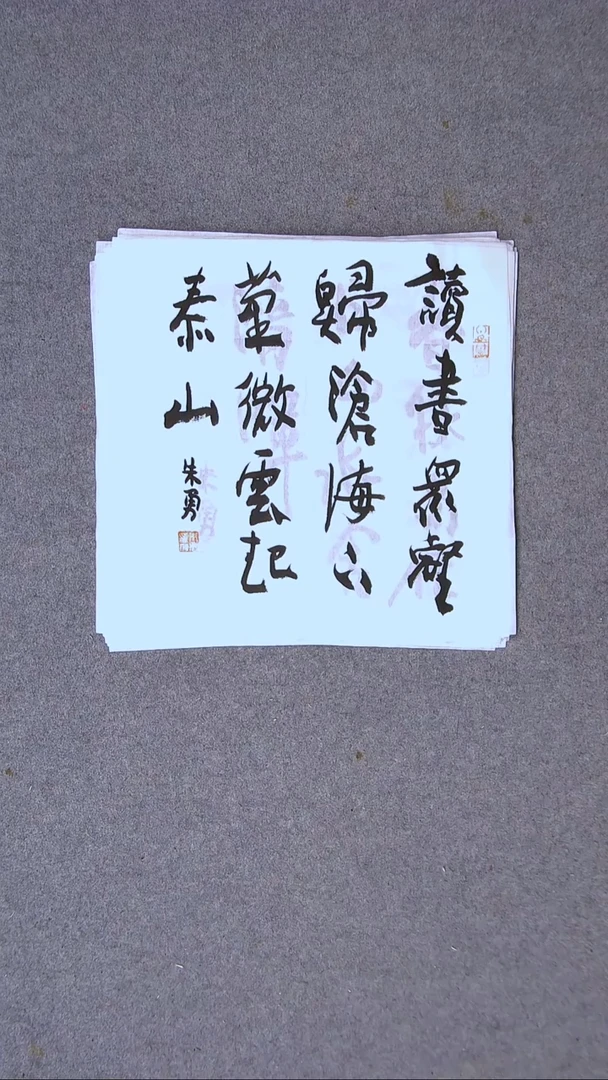 讀書眾壑
歸滄海下
筆微雲起
泰山
朱勇